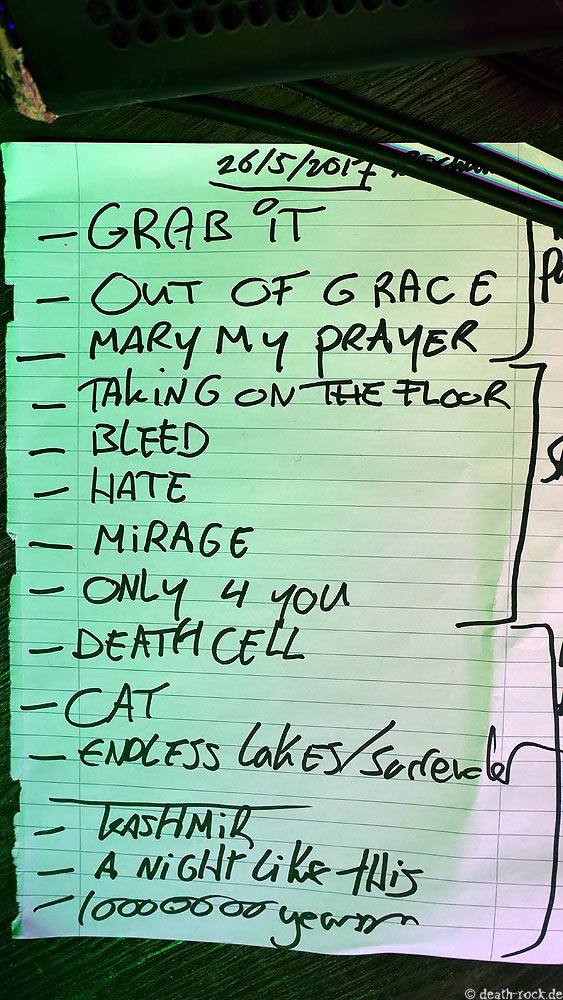 26/5/2017
- GRAB IT
- OUT OF GRACE
- MARY MY PRAYER
- TAKING ON THE FLOOR
- BLEED
- HATE
- MIRAGE
- ONLY 4 YOU
- DEATH CELL
- CAT
- ENDLESS LAKES/Surrender
- KASHMIR
- A NIGHT Like tHis
- 10000000 years
© death-rock.de